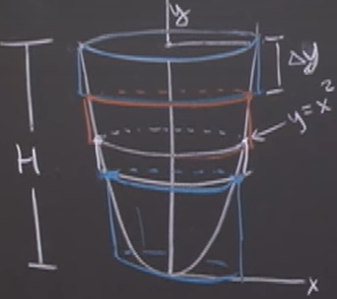 y
Δy
y = x²
H
x